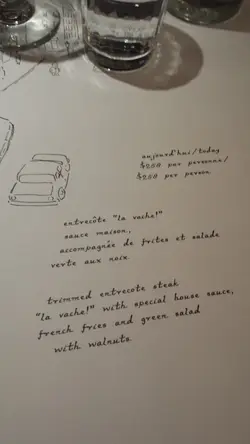 aujourd'hui/today
par personne/
per person
entrecôte "la vache!"
sauce maison,
accompagnée de frites et salade
verte aux noix
trimmed entrecote steak
"la vache!" with special house sauce,
french fries and green salad
with walnuts